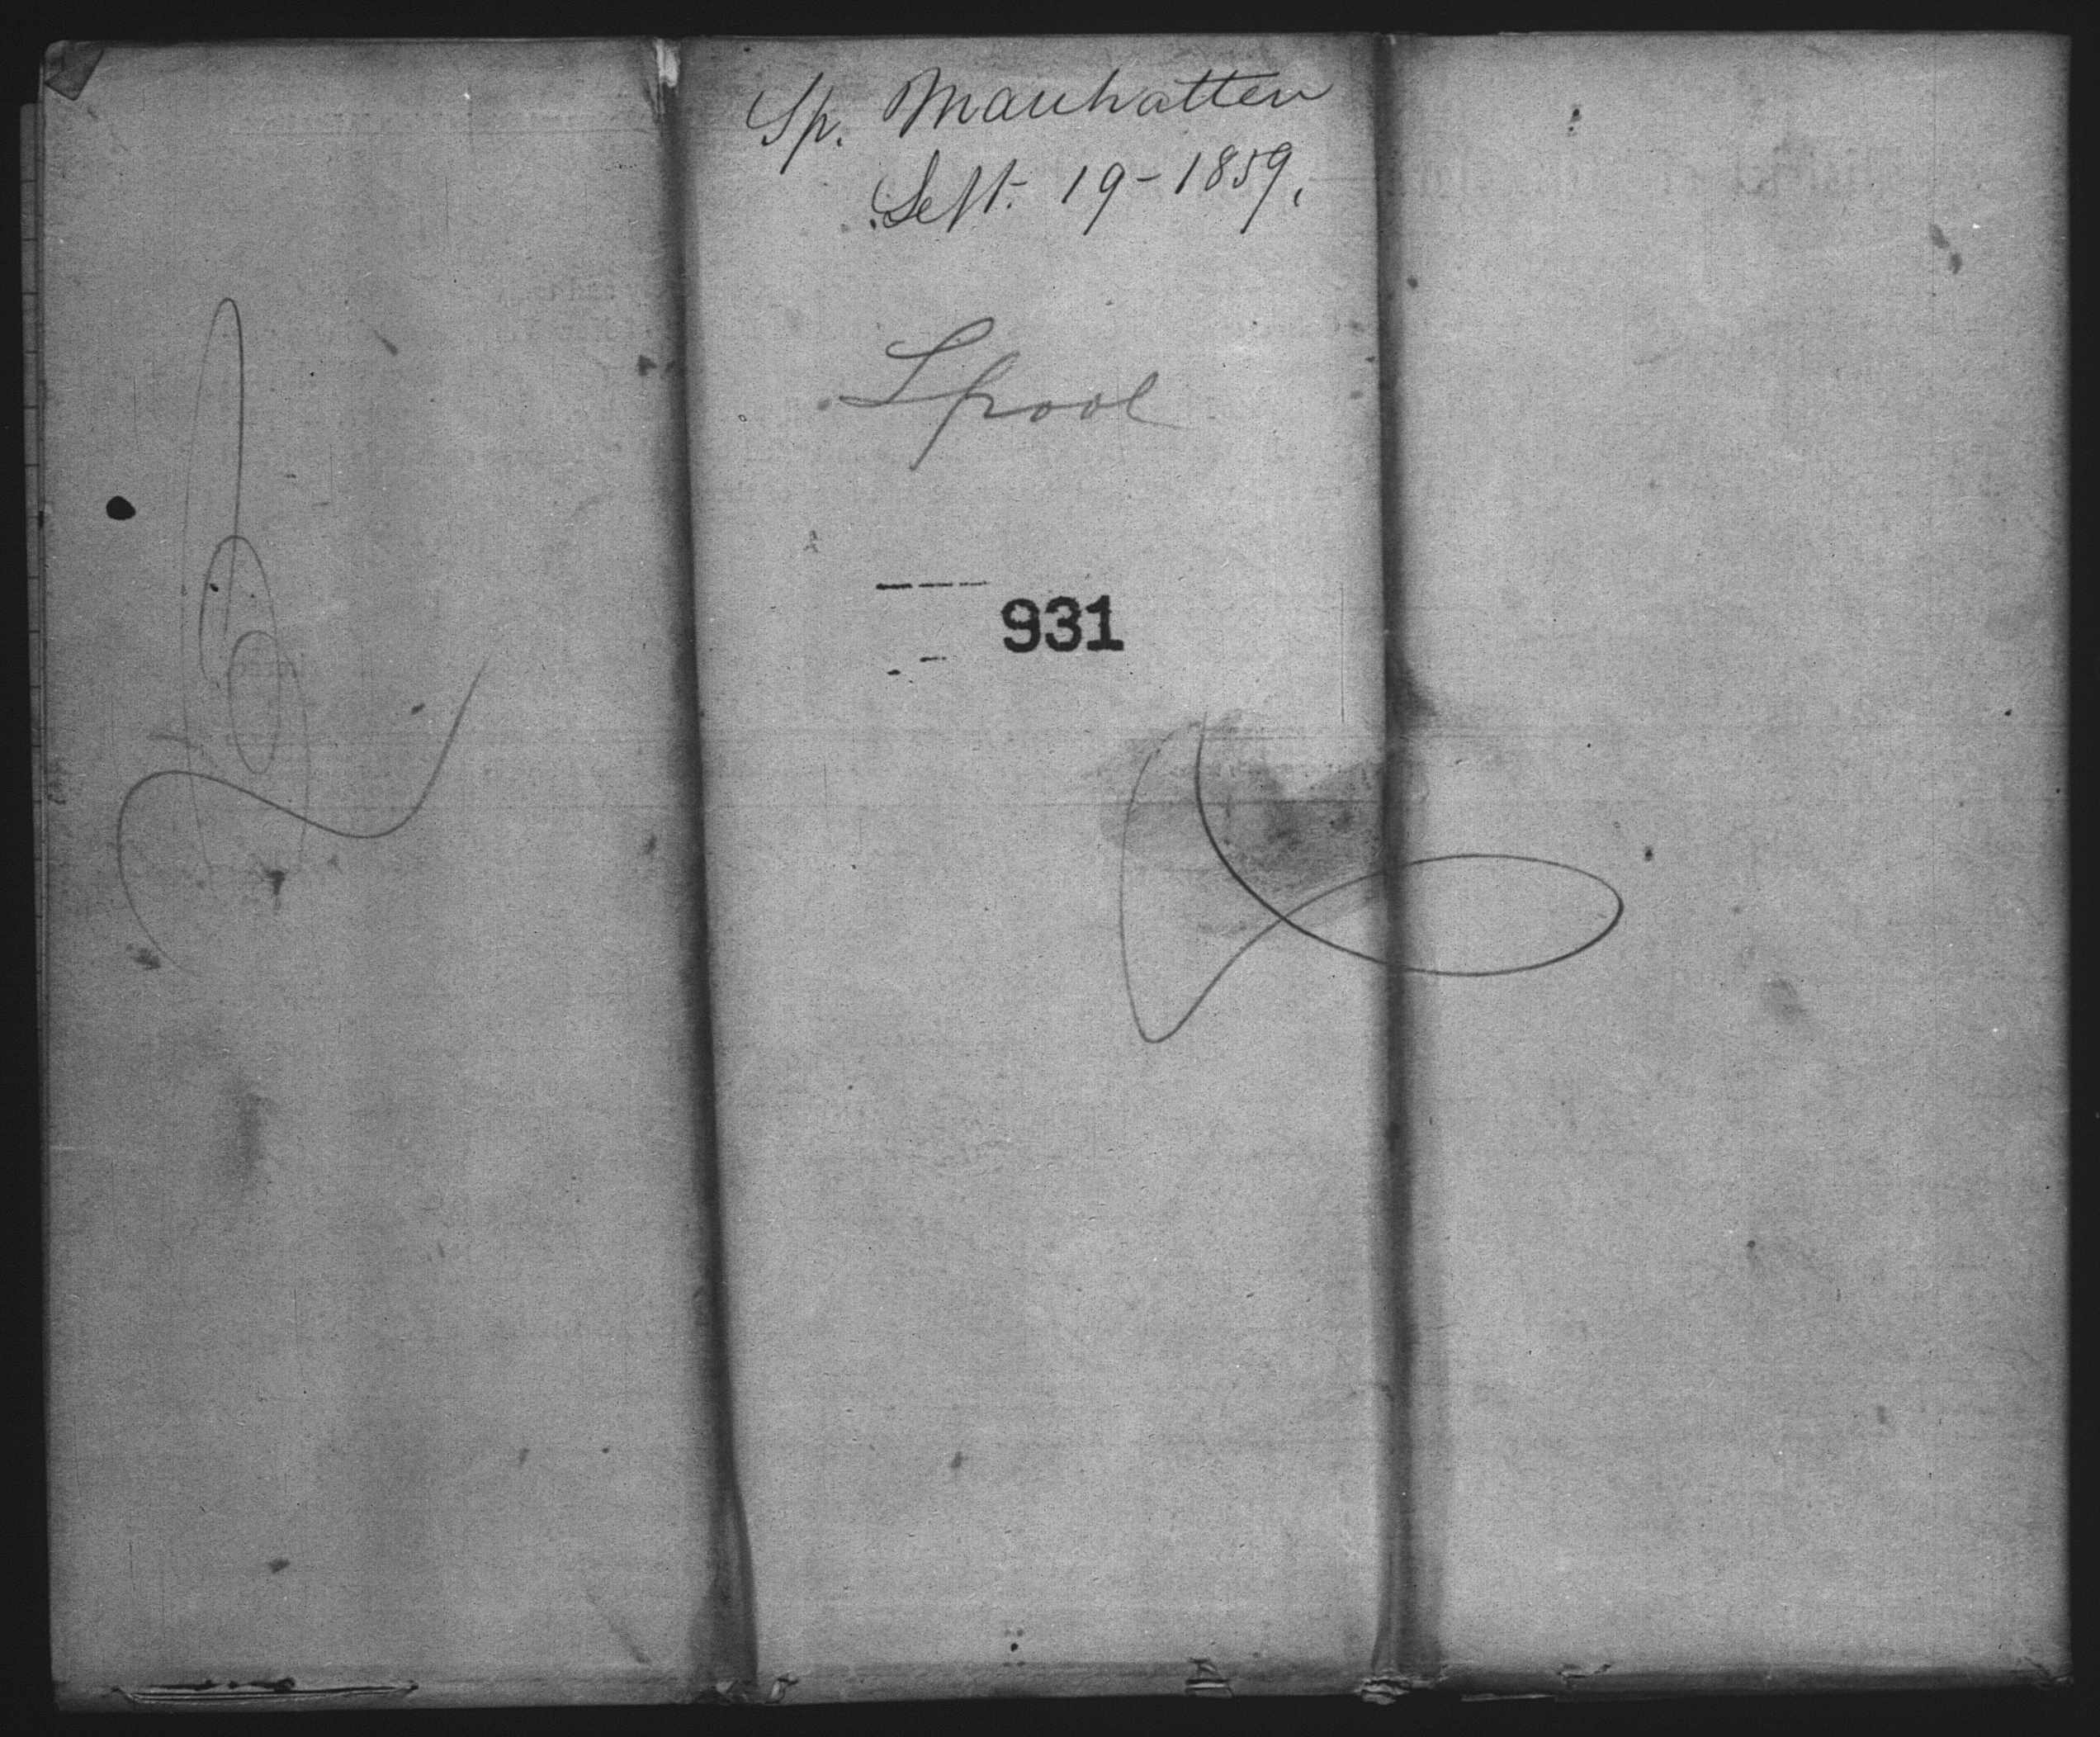 Sp. Manhatten
Sept. 19-1859.
Lpool
931